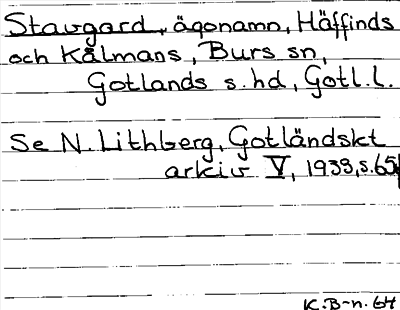 Stavgard, ägonamn, Häffinds
och Kålmans, Burs sn,
Gotlands s. hd, Gotl. l.
Se N. Lithberg, Gotländskt
arkiv V, 1933, s. 65f
K. B-n. 64